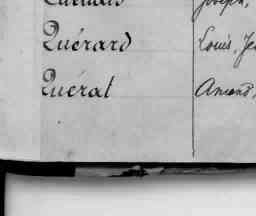 Joseph,
Quérard Louis, Je
Quérat Amand,